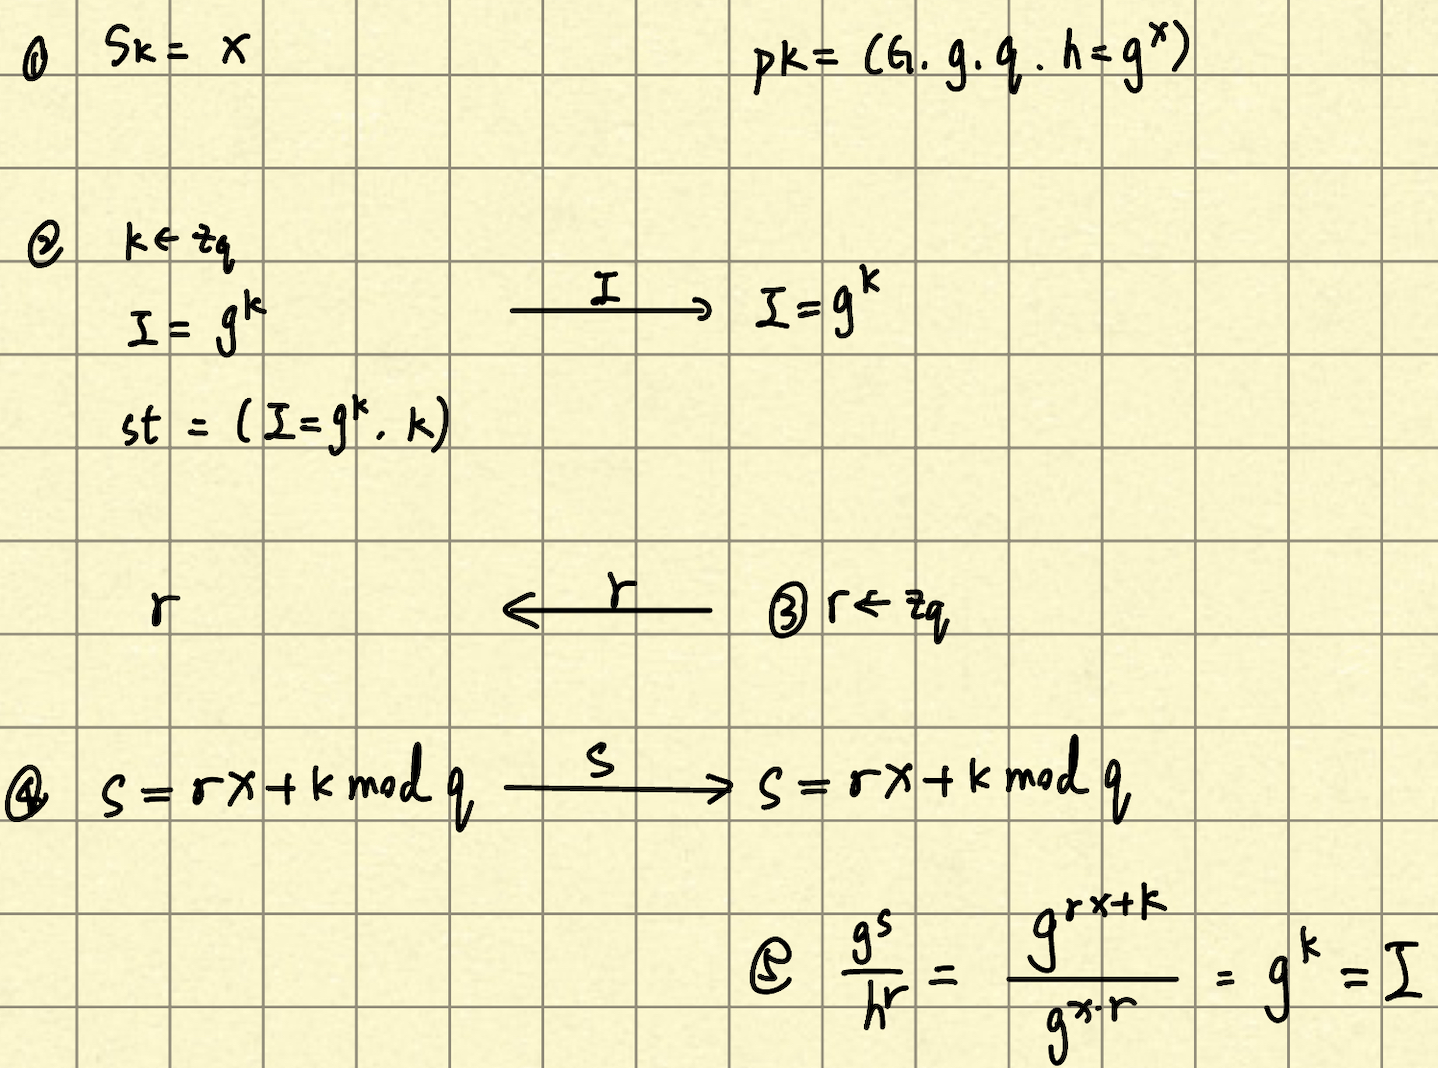 ① Sk = x pk = (G. g. q. h = g^x)
② k ← Zq
I = g^k I → I = g^k
st = (I = g^k. k)
r ← r ③ r ← Zq
④ S = rx + k mod q S → S = rx + k mod q
⑤ g^s / h^r = g^{rx+k} / g^{x·r} = g^k = I